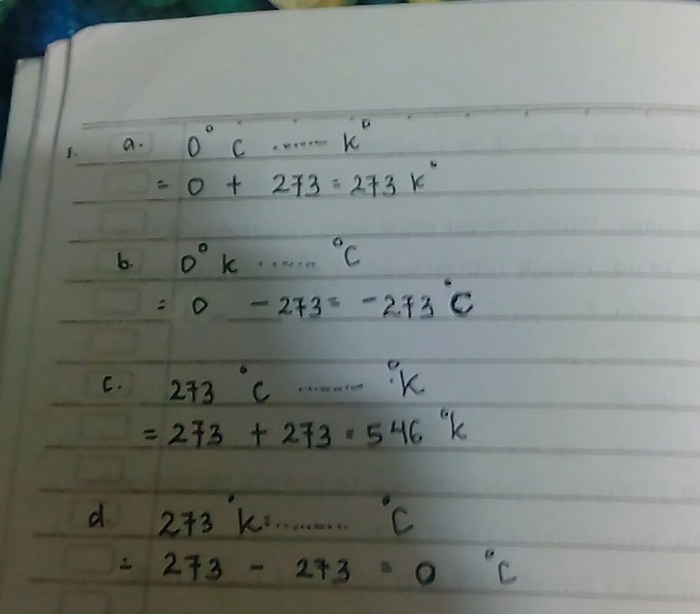 1. a. 0° C ....... K°
= 0 + 273 = 273 K°
b. 0° K ...... °C
= 0 - 273 = -273 °C
c. 273 °C ........ °K
= 273 + 273 = 546 °K
d. 273 °K = ......... °C
= 273 - 273 = 0 °C